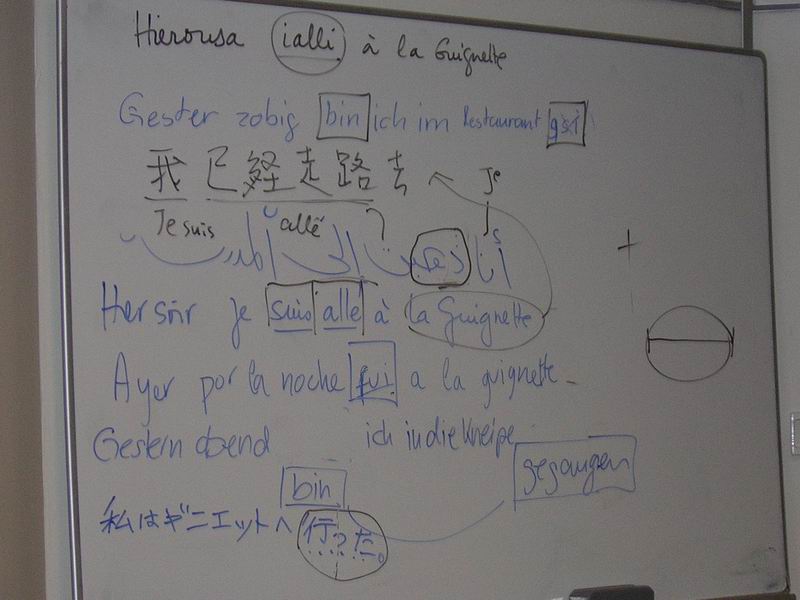 Hierousa ialli à la Guignette
Gester zobig bin ich im Restaurant gsi
我已経走路去 Je
Je suis allé
أنا ذهبت إلى
Hier soir je suis allé à la Guignette
Ayer por la noche fui a la guignette
Gestern abend ich in die Kneipe
gegangen
bin
私はギニエットへ行?だ。